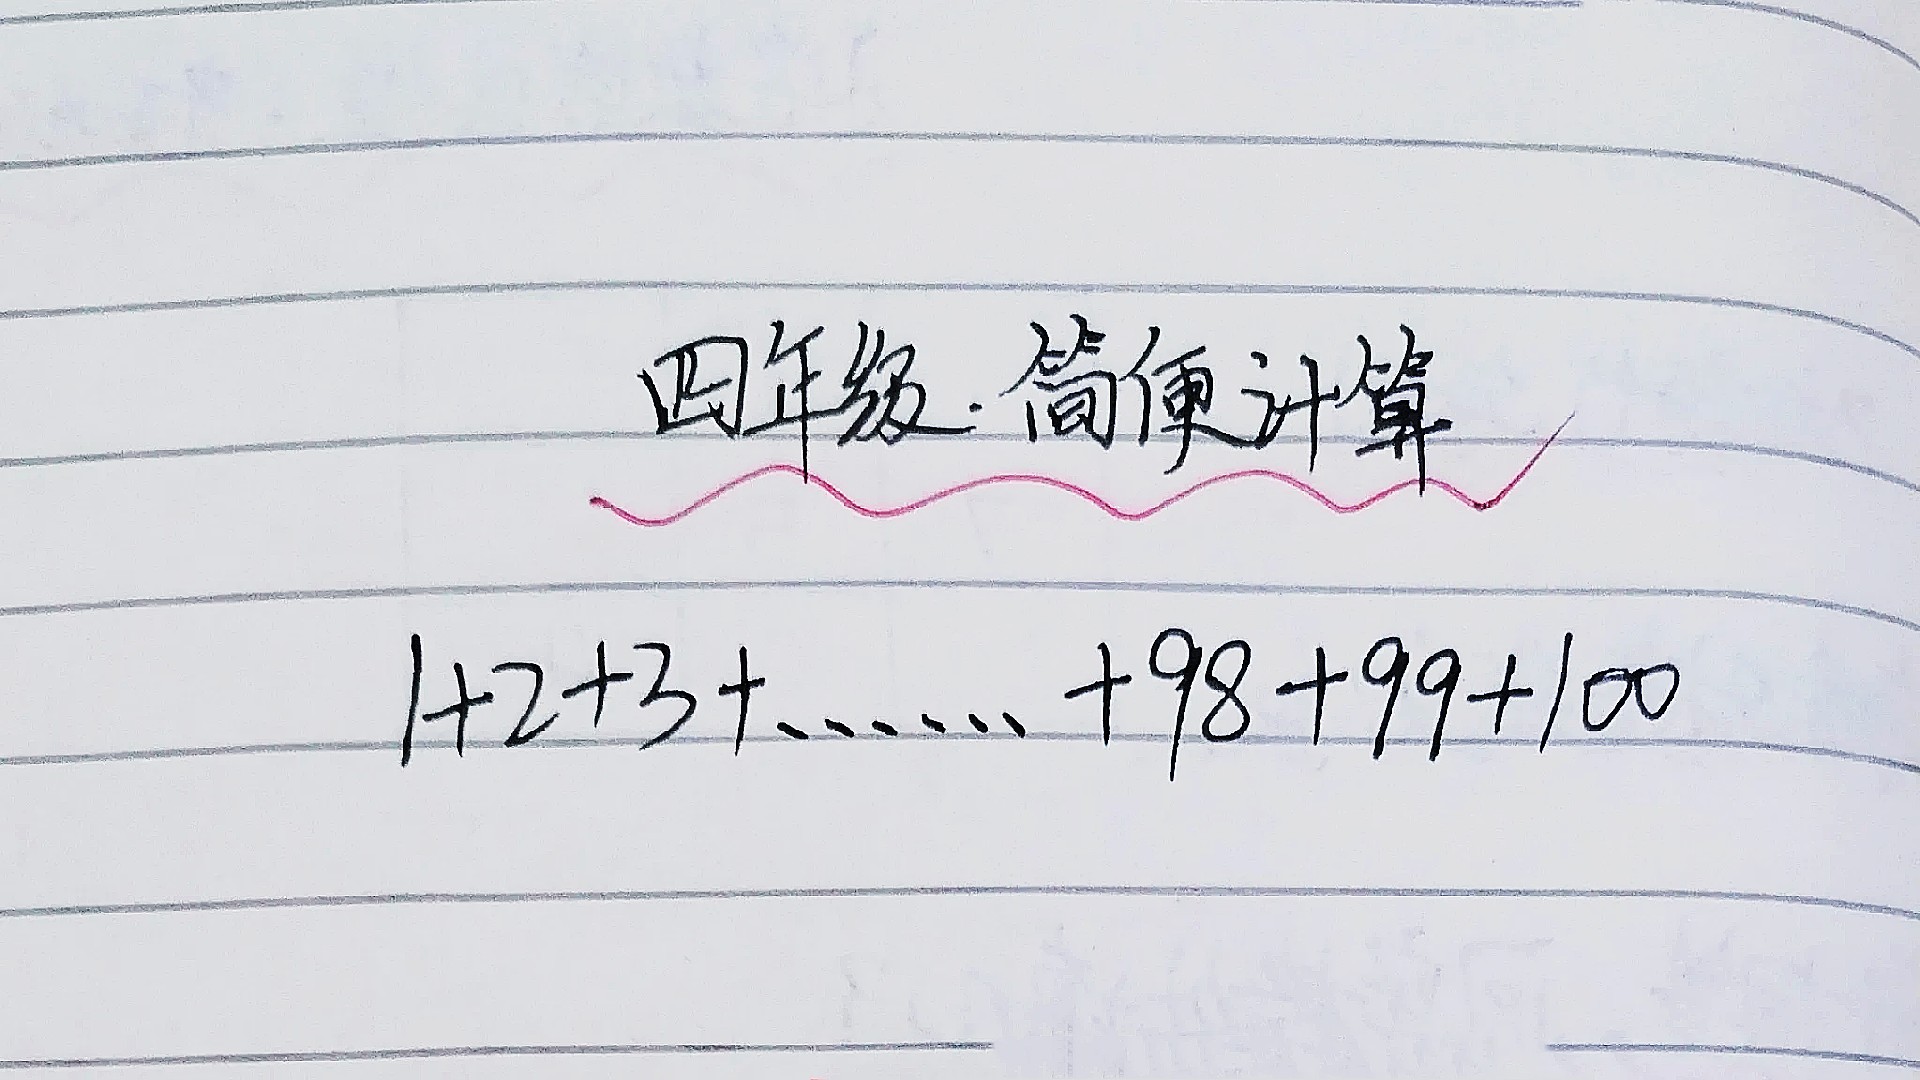 四年级.简便计算
1+2+3+.......+98+99+100